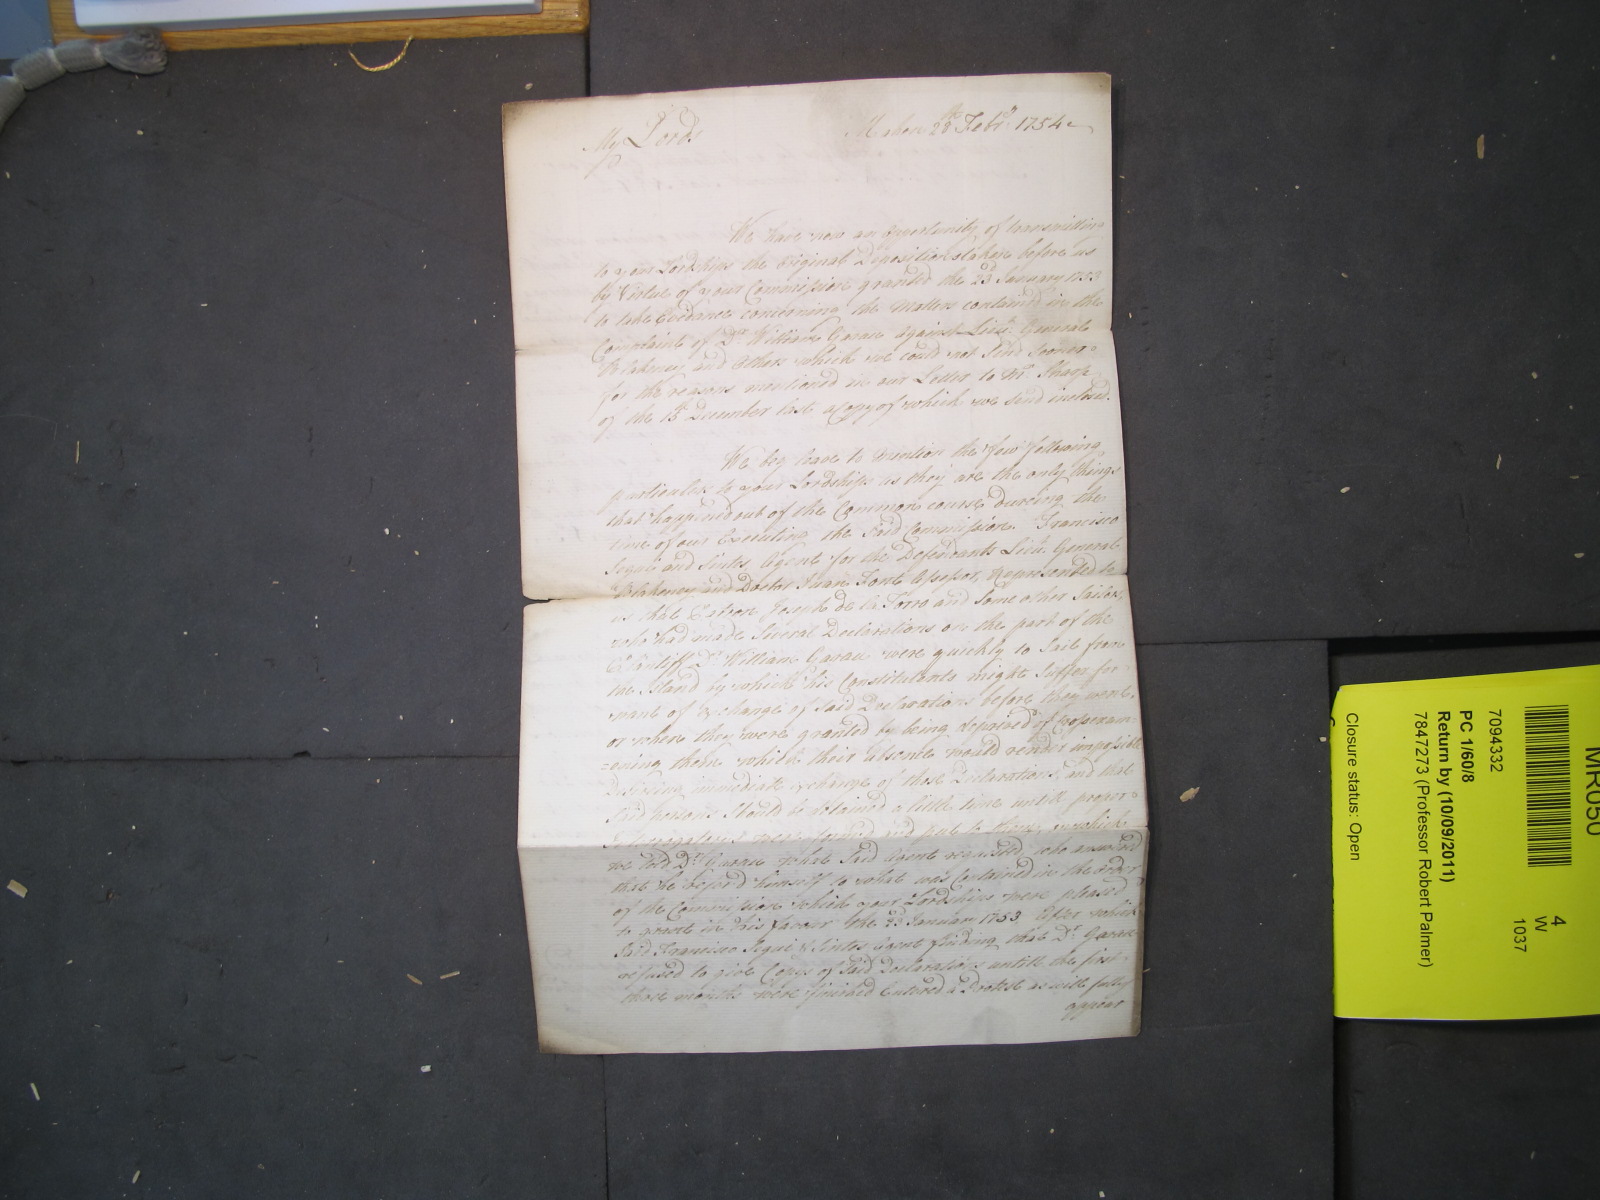 My Lords
Mahon 28th Febry 1754
We have now an Opportunity of transmitting
to your Lordships the Original Depositions taken before us
by Virtue of your Commission granted the 23d January 1753
to take Evidence concerning the Matters contained in the
Complaint of Dr. William Garau against Lieut. General
Blakeney and Others which we could not Send sooner
for the reasons mentioned in our Letter to Mr. Sharpe
of the 15th December last a Copy of which we Send inclosed.
We beg leave to mention the few following
particulars to your Lordships as they are the only things
that happened out of the Common course dureing the
time of our Executing the Said Commission. Francisco
Segui and Sintes Agent for the Defendants Lieut. General
Blakeney and Doctor Juan Font Assessor, Represented to
us that Patron Joseph de la Torre and Some other Sailors
who had made Several Declarations on the part of the
Plantiff Dr. William Garau were quickly to Sail from
the Island by which his Constituents might Suffer for
want of Exchange of Said Declarations before they went,
or where they were granted by being deprived of Crossexam=
=ening them which their absence would render impossible
Desireing immediate Exchange of those Declarations, and that
Said persons Should be detained a little time untill proper
Interrogatories were formed and put to them, in which
we told Dr. Garau what Said Agent requested, who answered
that he referd himself to what was Contained in the Order
of the Commission which your Lordships were pleased
to grant in his favour the 23d January 1753 After which
Said Francisco Segui & Sintes Agent finding that Dr. Garau
refused to give Copys of Said Declarations untill the first
three months were finished Entered a Protest as will fully
appear
MR050
4
W
1037
7094332
PC 1/60/8
Return by (10/09/2011)
7847273 (Professor Robert Palmer)
Closure status: Open